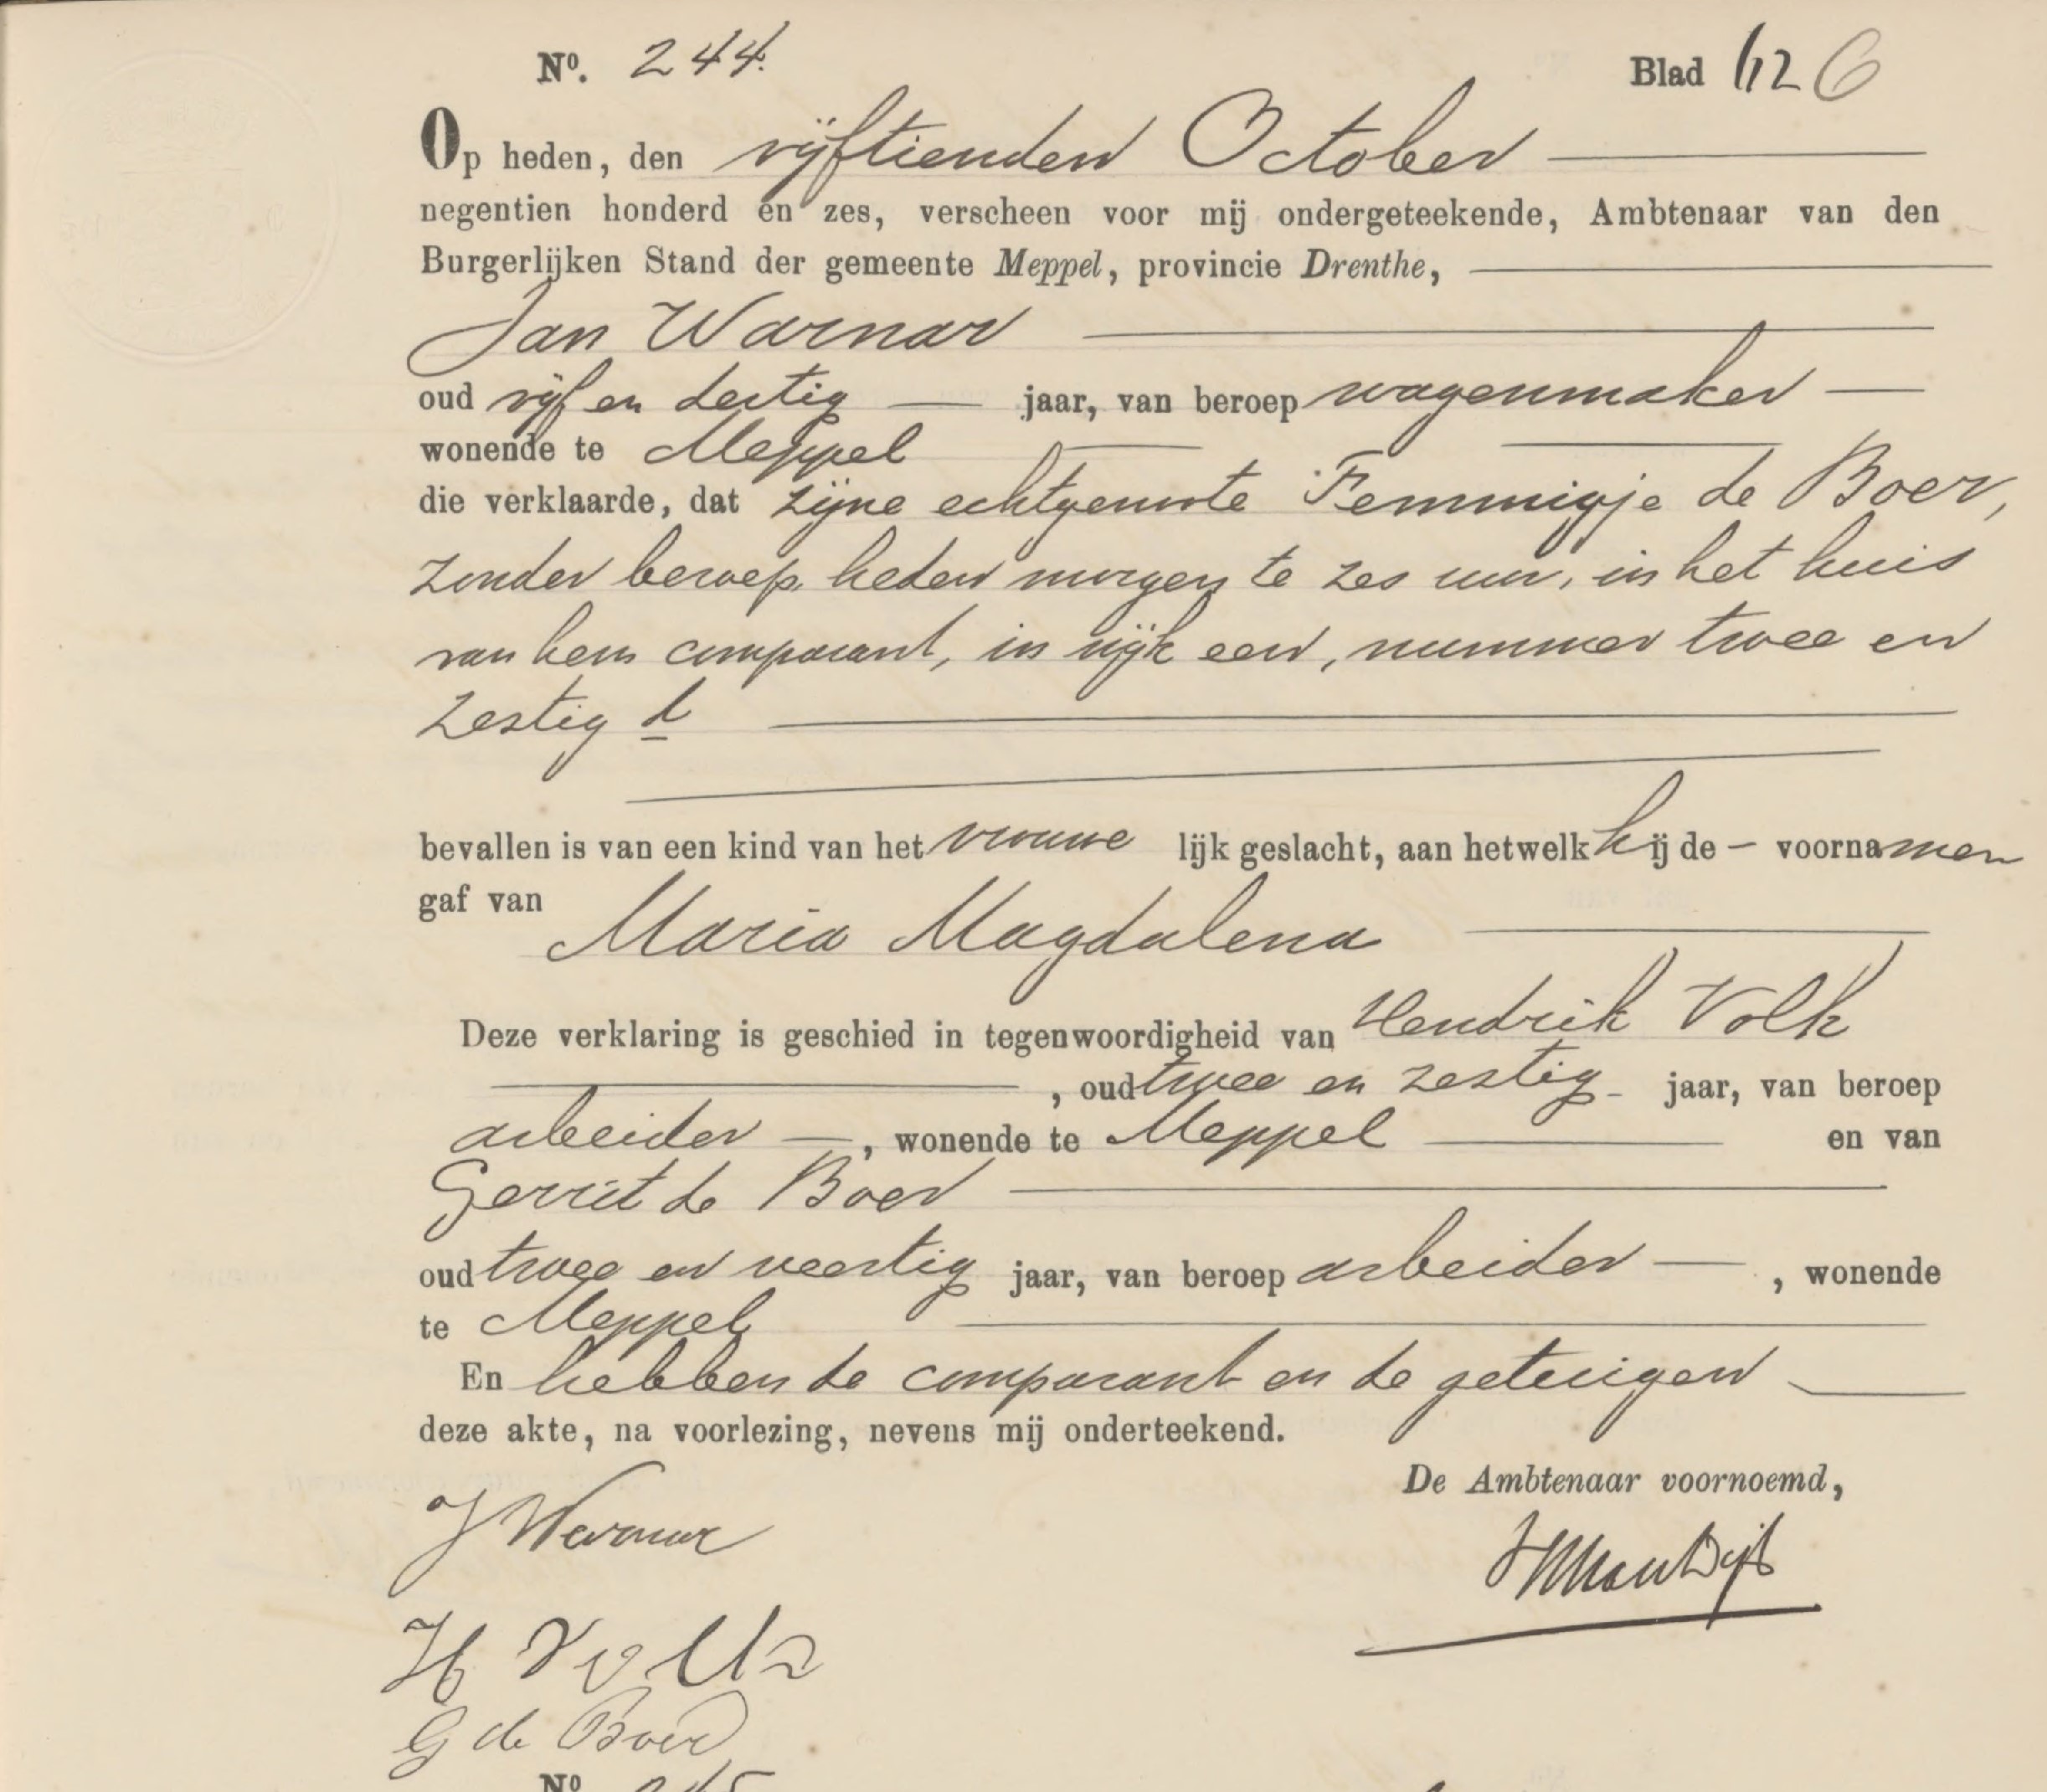 Nº. 244.
Blad 126
Op heden, den vijftienden October
negentien honderd en zes, verscheen voor mij ondergeteekende, Ambtenaar van den
Burgerlijken Stand der gemeente Meppel, provincie Drenthe,
Jan Warnar
oud vijf en dertig jaar, van beroep wagenmaker
wonende te Meppel
die verklaarde, dat zijne echtgenoote Femmigje de Boer,
zonder beroep, heden morgen te zes uur, in het huis
van hem comparant, in wijk een, nummer twee en
zestig d
bevallen is van een kind van het vrouwe lijk geslacht, aan hetwelk hij de – voornamen
gaf van
Maria Magdalena
Deze verklaring is geschied in tegenwoordigheid van Hendrik Volk
, oud twee en zestig jaar, van beroep
arbeider , wonende te Meppel en van
Gerrit de Boer
oud twee en veertig jaar, van beroep arbeider , wonende
te Meppel
En hebben de comparant en de getuigen
deze akte, na voorlezing, nevens mij onderteekend.
De Ambtenaar voornoemd,
J Warnar
H Volk
G de Boer
Nº 245